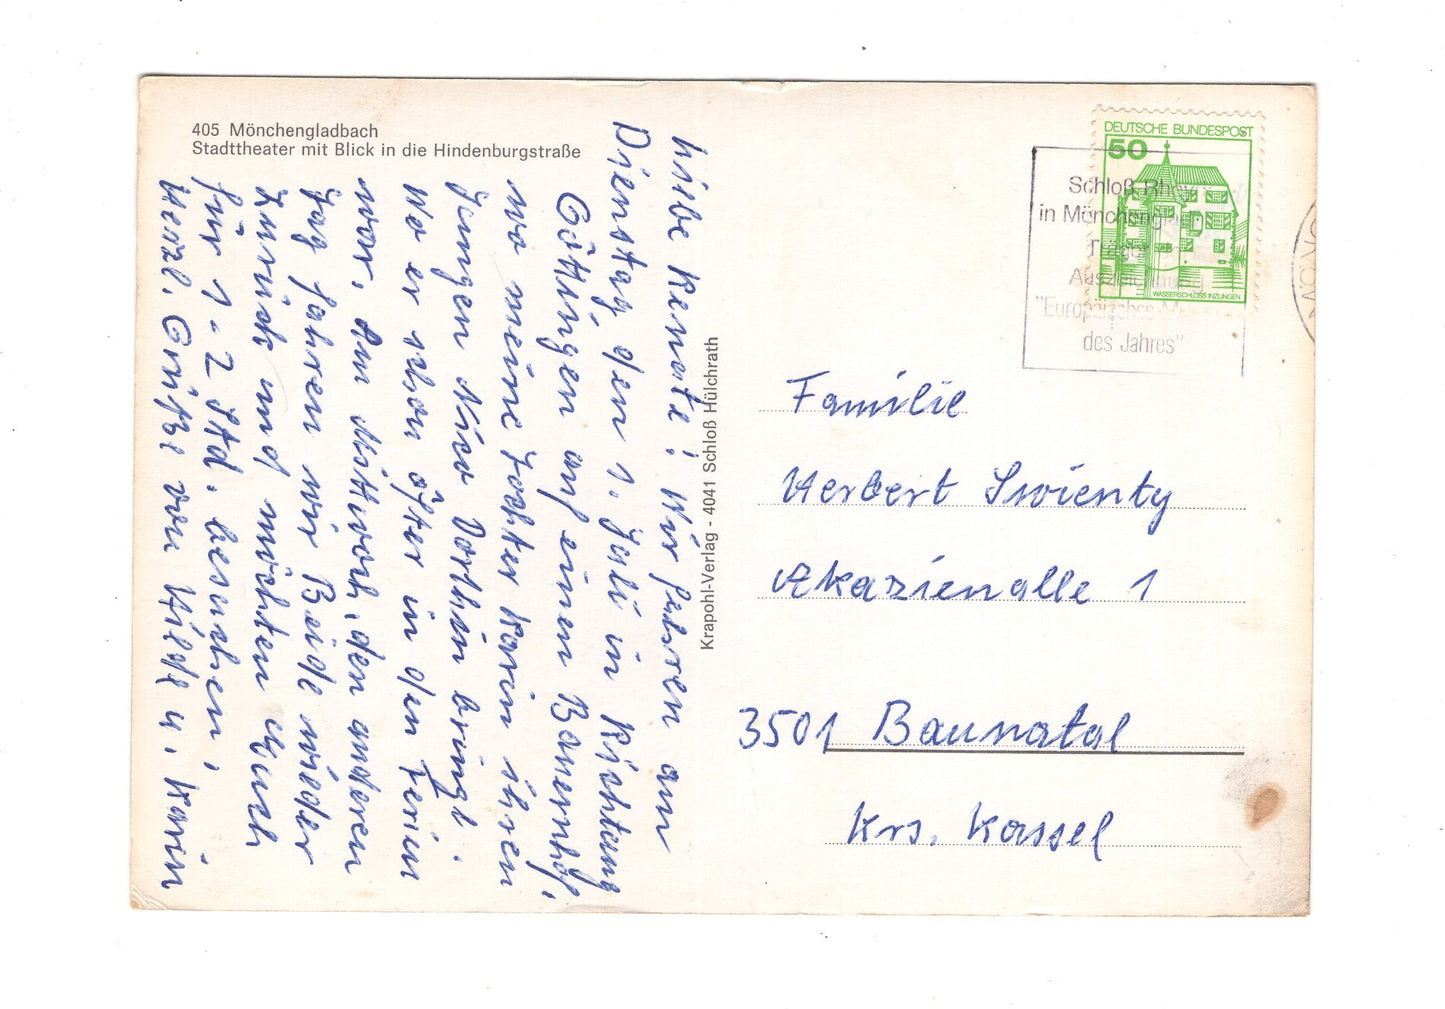 405 Mönchengladbach
Stadttheater mit Blick in die Hindenburgstraße
Liebe Renate! Wir fahren am
Dienstag, den 1. Juli in Richtung
Göttingen auf einen Bauernhof,
wo meine Tochter Karin ihren
Jungen Nico Dorthin bringt.
Wo er schon öfter in den Ferien
war. Am Mittwoch, den anderen
Tag fahren wir Beide wieder
Zurück und möchten Euch
für 1-2 Std. besuchen,
Herzl. Grüße von Hilde u. Karin
Krapohl-Verlag - 4041 Schloß Hülchrath
DEUTSCHE BUNDESPOST
50
WASSERSCHLOSS INZLINGEN
Schloß Rhey
in Mönchengl
Träger
Auszeichnung
"Europäisches M
des Jahres"
Familie
Herbert Swienty
Akazienalle 1
3501 Baunatal
Krs. Kassel